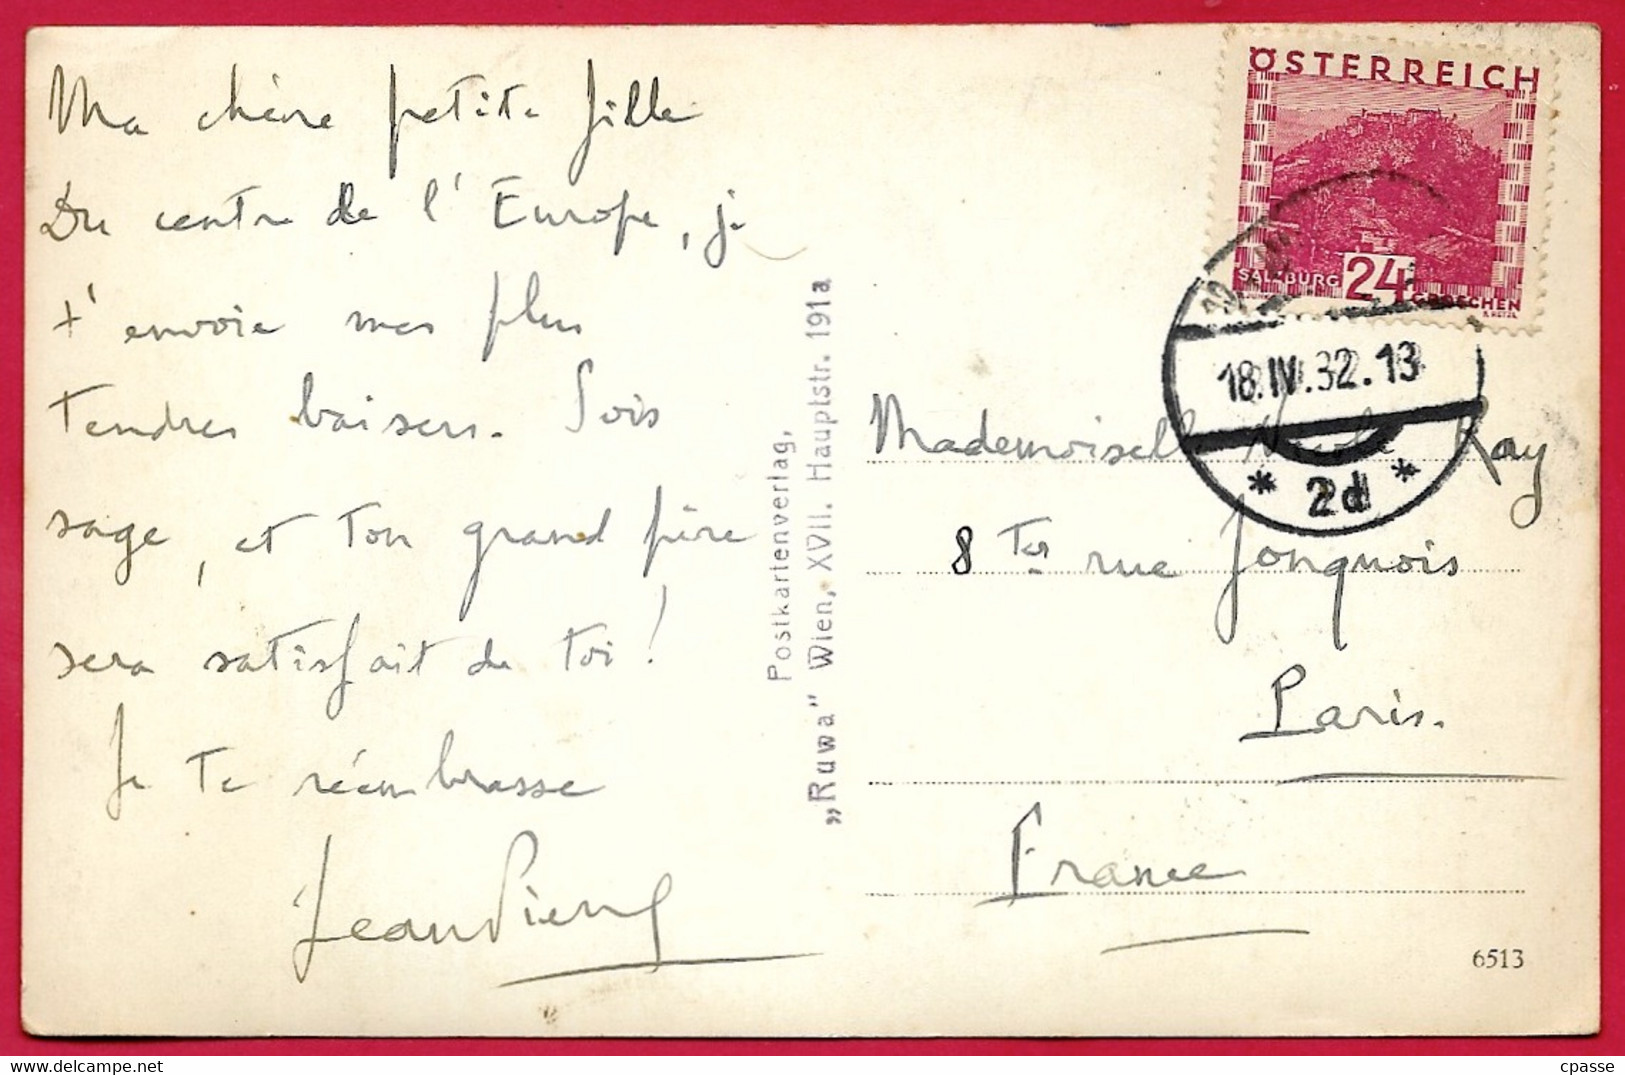 Ma chère petite fille
Du centre de l'Europe, je
t'envoie mes plus
tendres baisers. Sois
sage, et ton grand père
sera satisfait de toi !
Je te réembrasse
Jean Pierre
Postkartenverlag,
„Ruwa" Wien, XVII. Hauptstr. 191a
ÖSTERREICH
SALZBURG 24 GROSCHEN
18.IV.32.13
* 2d *
Mademoiselle Nicole Ray
8 Ter rue Jonquois
Paris.
France
6513
cpasse